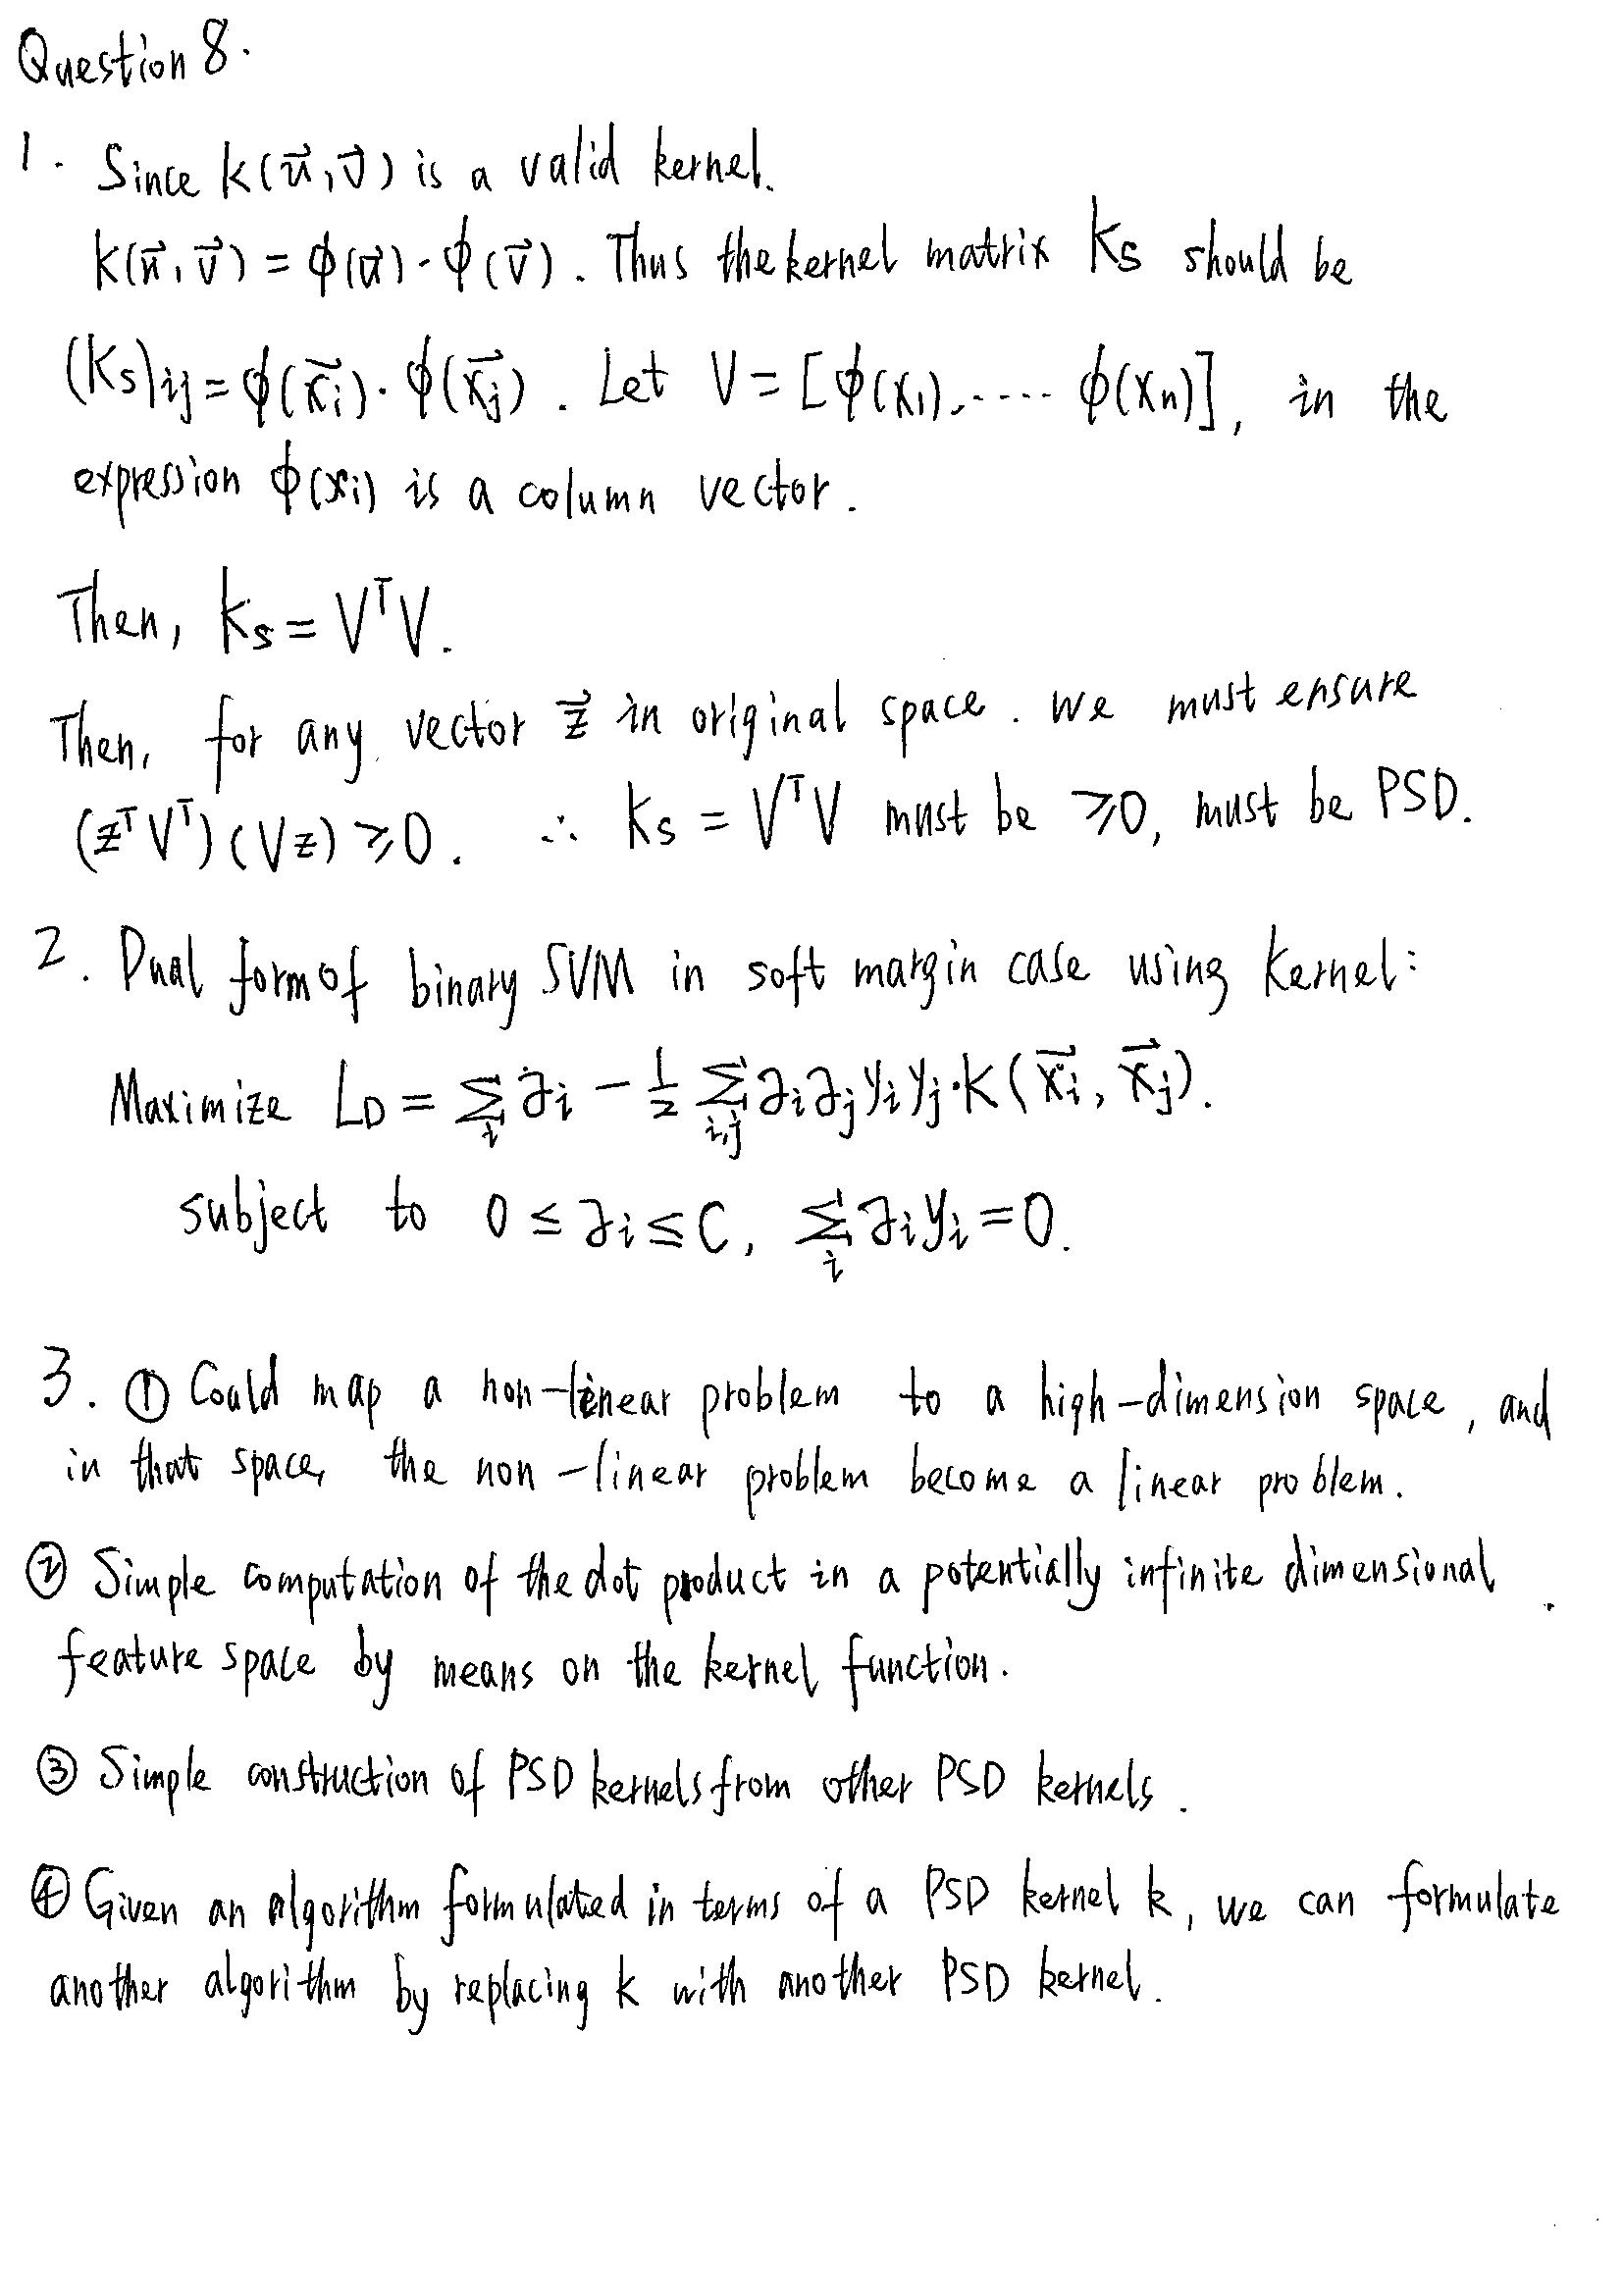 Question 8.
1. Since k(u⃗,v⃗) is a valid kernel.
k(u⃗,v⃗) = ϕ(u⃗)·ϕ(v⃗). Thus the kernel matrix Ks should be
(Ks)ij = ϕ(x⃗i)·ϕ(x⃗j). Let V = [ϕ(x1),..... ϕ(xn)], in the
expression ϕ(xi) is a column vector.
Then, Ks = VᵀV.
Then, for any vector z⃗ in original space. we must ensure
(zᵀVᵀ)(Vz) ≥ 0. ∴ Ks = VᵀV must be ≥0, must be PSD.
2. Dual form of binary SVM in soft margin case using kernel:
Maximize LD = ∑i ∂i − 1/2 ∑i,j ∂i∂j yi yj·k(x⃗i, x⃗j).
subject to 0 ≤ ∂i ≤ C, ∑i ∂i yi = 0.
3. ① Could map a non-linear problem to a high-dimension space, and
in that space, the non-linear problem become a linear problem.
② Simple computation of the dot product in a potentially infinite dimensional
feature space by means on the kernel function.
③ Simple construction of PSD kernels from other PSD kernels.
④ Given an algorithm formulated in terms of a PSD kernel k, we can formulate
another algorithm by replacing k with another PSD kernel.